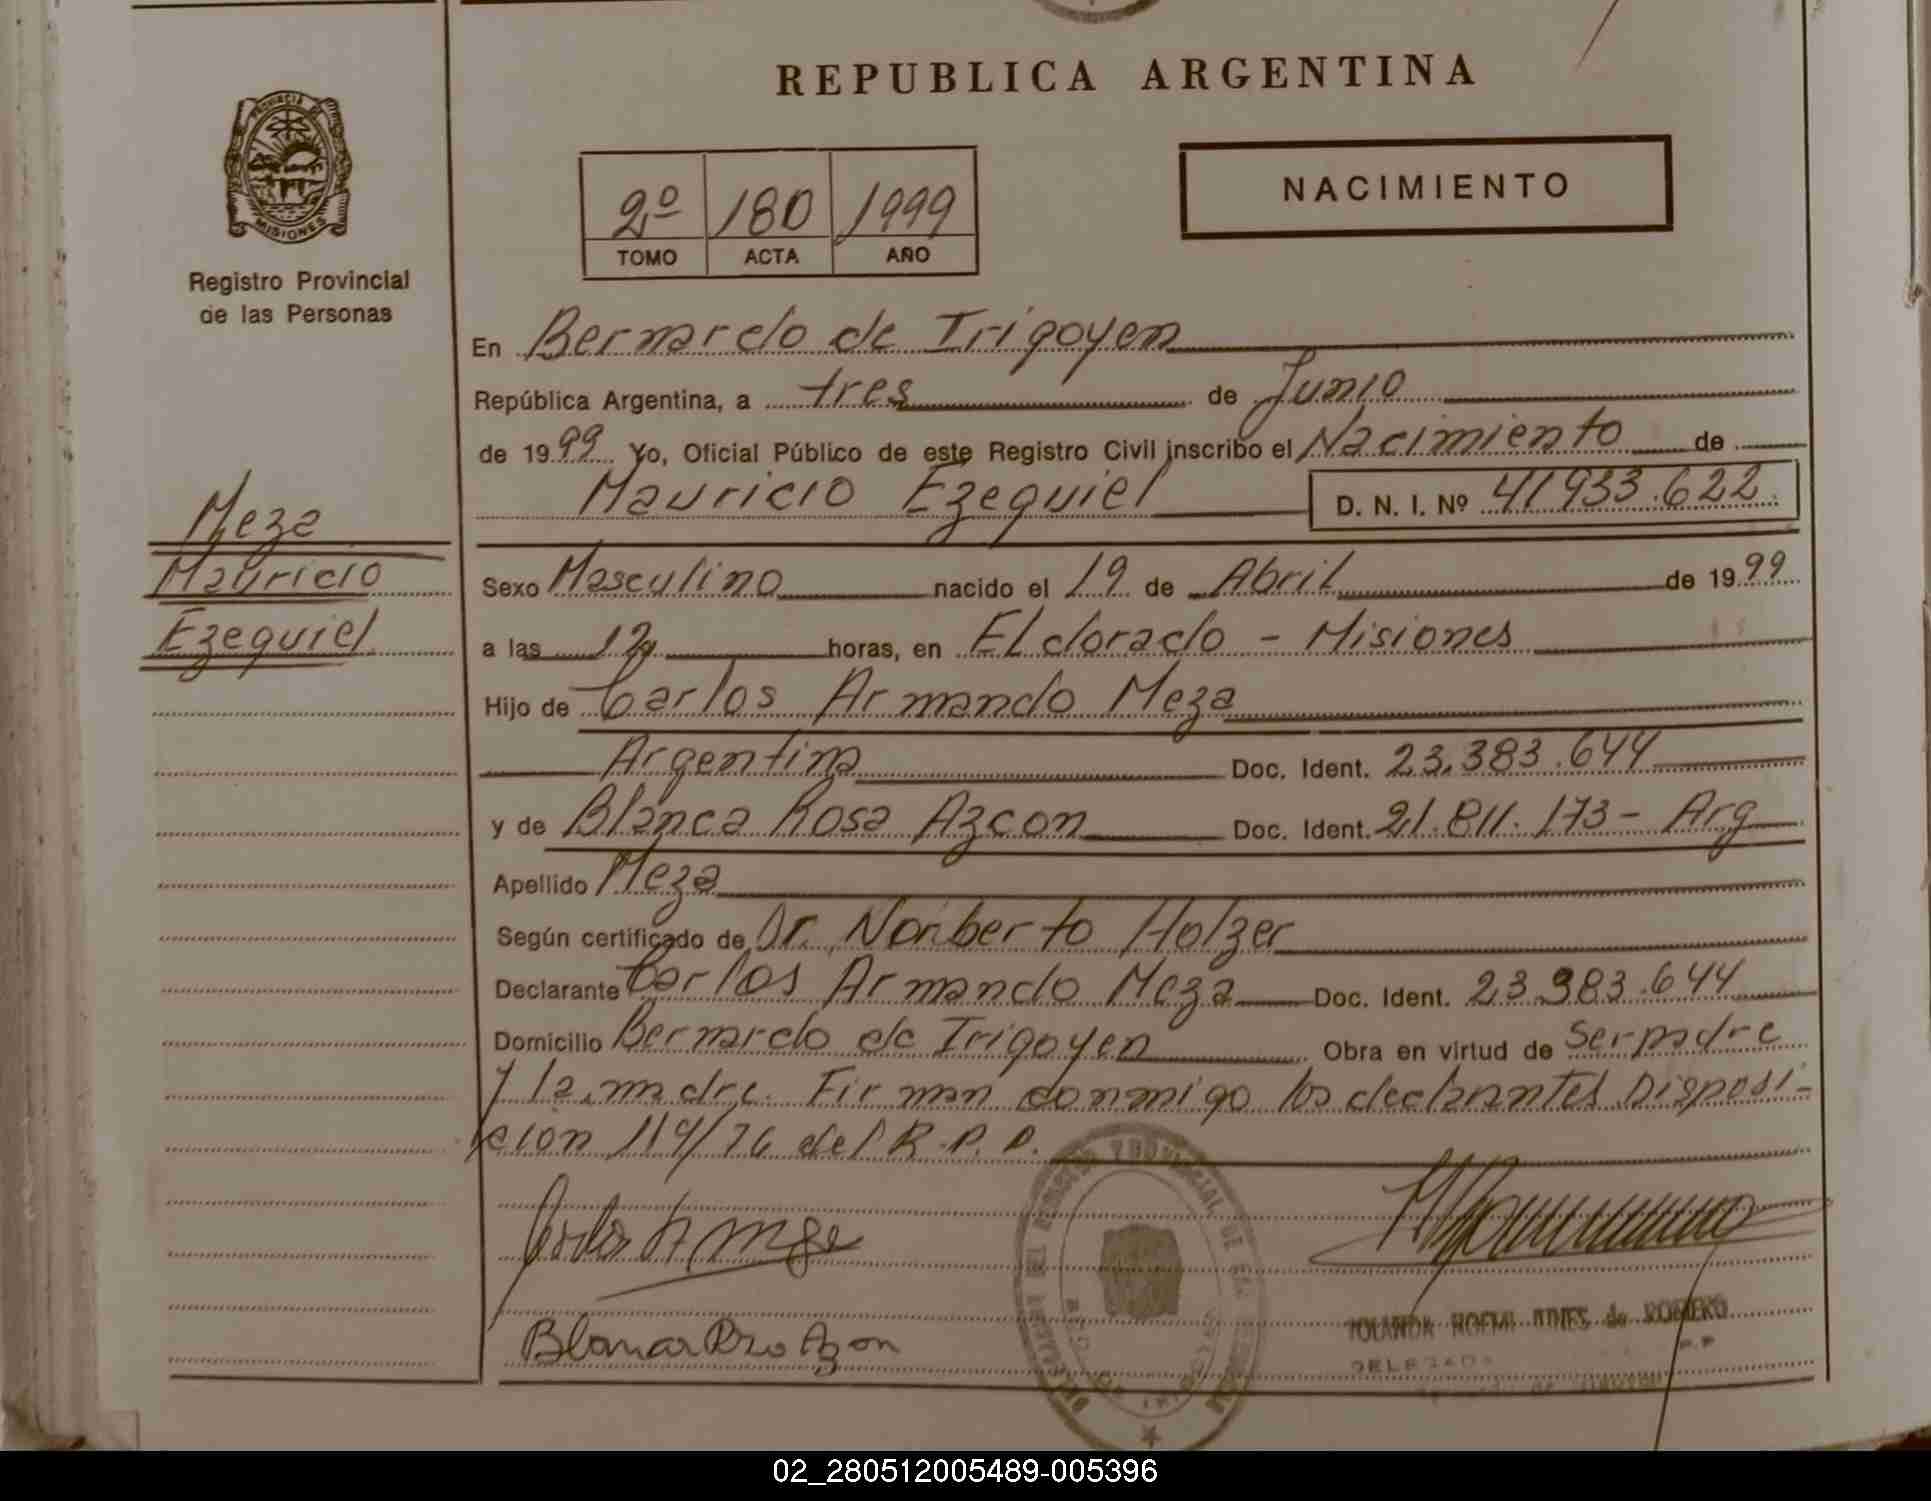 REPUBLICA ARGENTINA
PROVINCIA DE
MISIONES
Registro Provincial
de las Personas
2º 180 1999
TOMO ACTA AÑO
NACIMIENTO
Meza
Mauricio
Ezequiel
En Bernardo de Irigoyen
República Argentina, a tres de Junio
de 1999 Yo, Oficial Público de este Registro Civil inscribo el Nacimiento de
Mauricio Ezequiel D. N. I. Nº 41933.622
Sexo Masculino nacido el 19 de Abril de 1999
a las 12 horas, en ELdorado - Misiones
Hijo de Carlos Armando Meza
Argentina Doc. Ident. 23.383.644
y de Blanca Rosa Azcon Doc. Ident. 21.811.173 - Arg
Apellido Meza
Según certificado de Dr. Norberto Holzer
Declarante Carlos Armando Meza Doc. Ident. 23.383.644
Domicilio Bernardo de Irigoyen Obra en virtud de ser padre
y la madre. Firman conmigo los declarantes Disposi-
cion 119/76 del R.P.P.
REGISTRO PROVINCIAL DE LAS
Blanca Rosa Azcon
DELEGADA
02_280512005489-005396